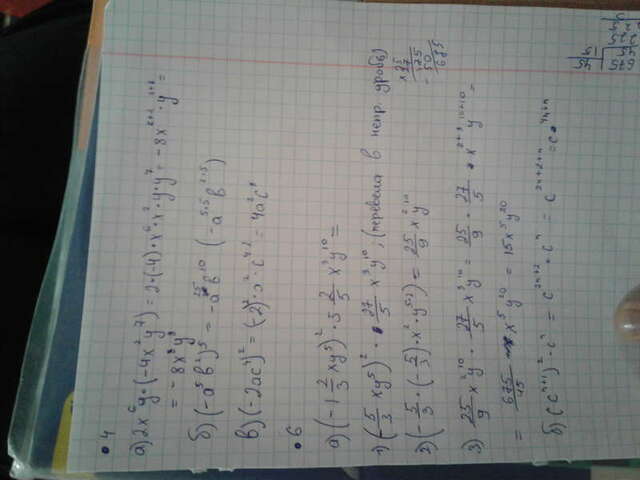 • 4
а) 2x⁶y·(-4x²y⁷) = 2·(-4)·x⁶·x²·y·y⁷ = -8x⁶⁺²·y¹⁺⁷ =
= -8x⁸y⁸
б) (-a⁵b²)⁵ = -a²⁵b¹⁰ (-a⁵·⁵b²·⁵)
в) (-2ac⁴)² = (-2)²·a²·c⁴·² = 4a²c⁸
• 6
а) (-1 2/3 xy⁵)² · 5 2/5 x³y¹⁰ =
1) (-5/3 xy⁵)² · 27/5 x³y¹⁰, (перевела в непр. дробь)
2) (-5/3·(-5/3)·x²·y⁵·²) = 25/9 x²y¹⁰
×25
27
175
50
675
3) 25/9 x²y¹⁰ · 27/5 x³y¹⁰ = 25/9 · 27/5 · x²⁺³y¹⁰⁺¹⁰ =
= 675/45 x⁵y²⁰ = 15x⁵y²⁰
б) (cⁿ⁺¹)²·cⁿ = c²ⁿ⁺²·cⁿ = c²ⁿ⁺²⁺ⁿ =
675 45
45 15
225
225